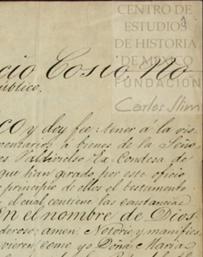 CENTRO DE
ESTUDIOS
DE HISTORIA
DE MÉXICO
FUNDACIÓN
Carlos Slim
cio Cosio. No
público.
co y doy fee, tener a la vis
a traves de la Seño
Ex Condesa de
que han girado por este oficio
principio de ellos el testimento
el cual contiene las
En el nombre de Dios
deroso; amen: Notorio y manifies
vieren como yo Doña María